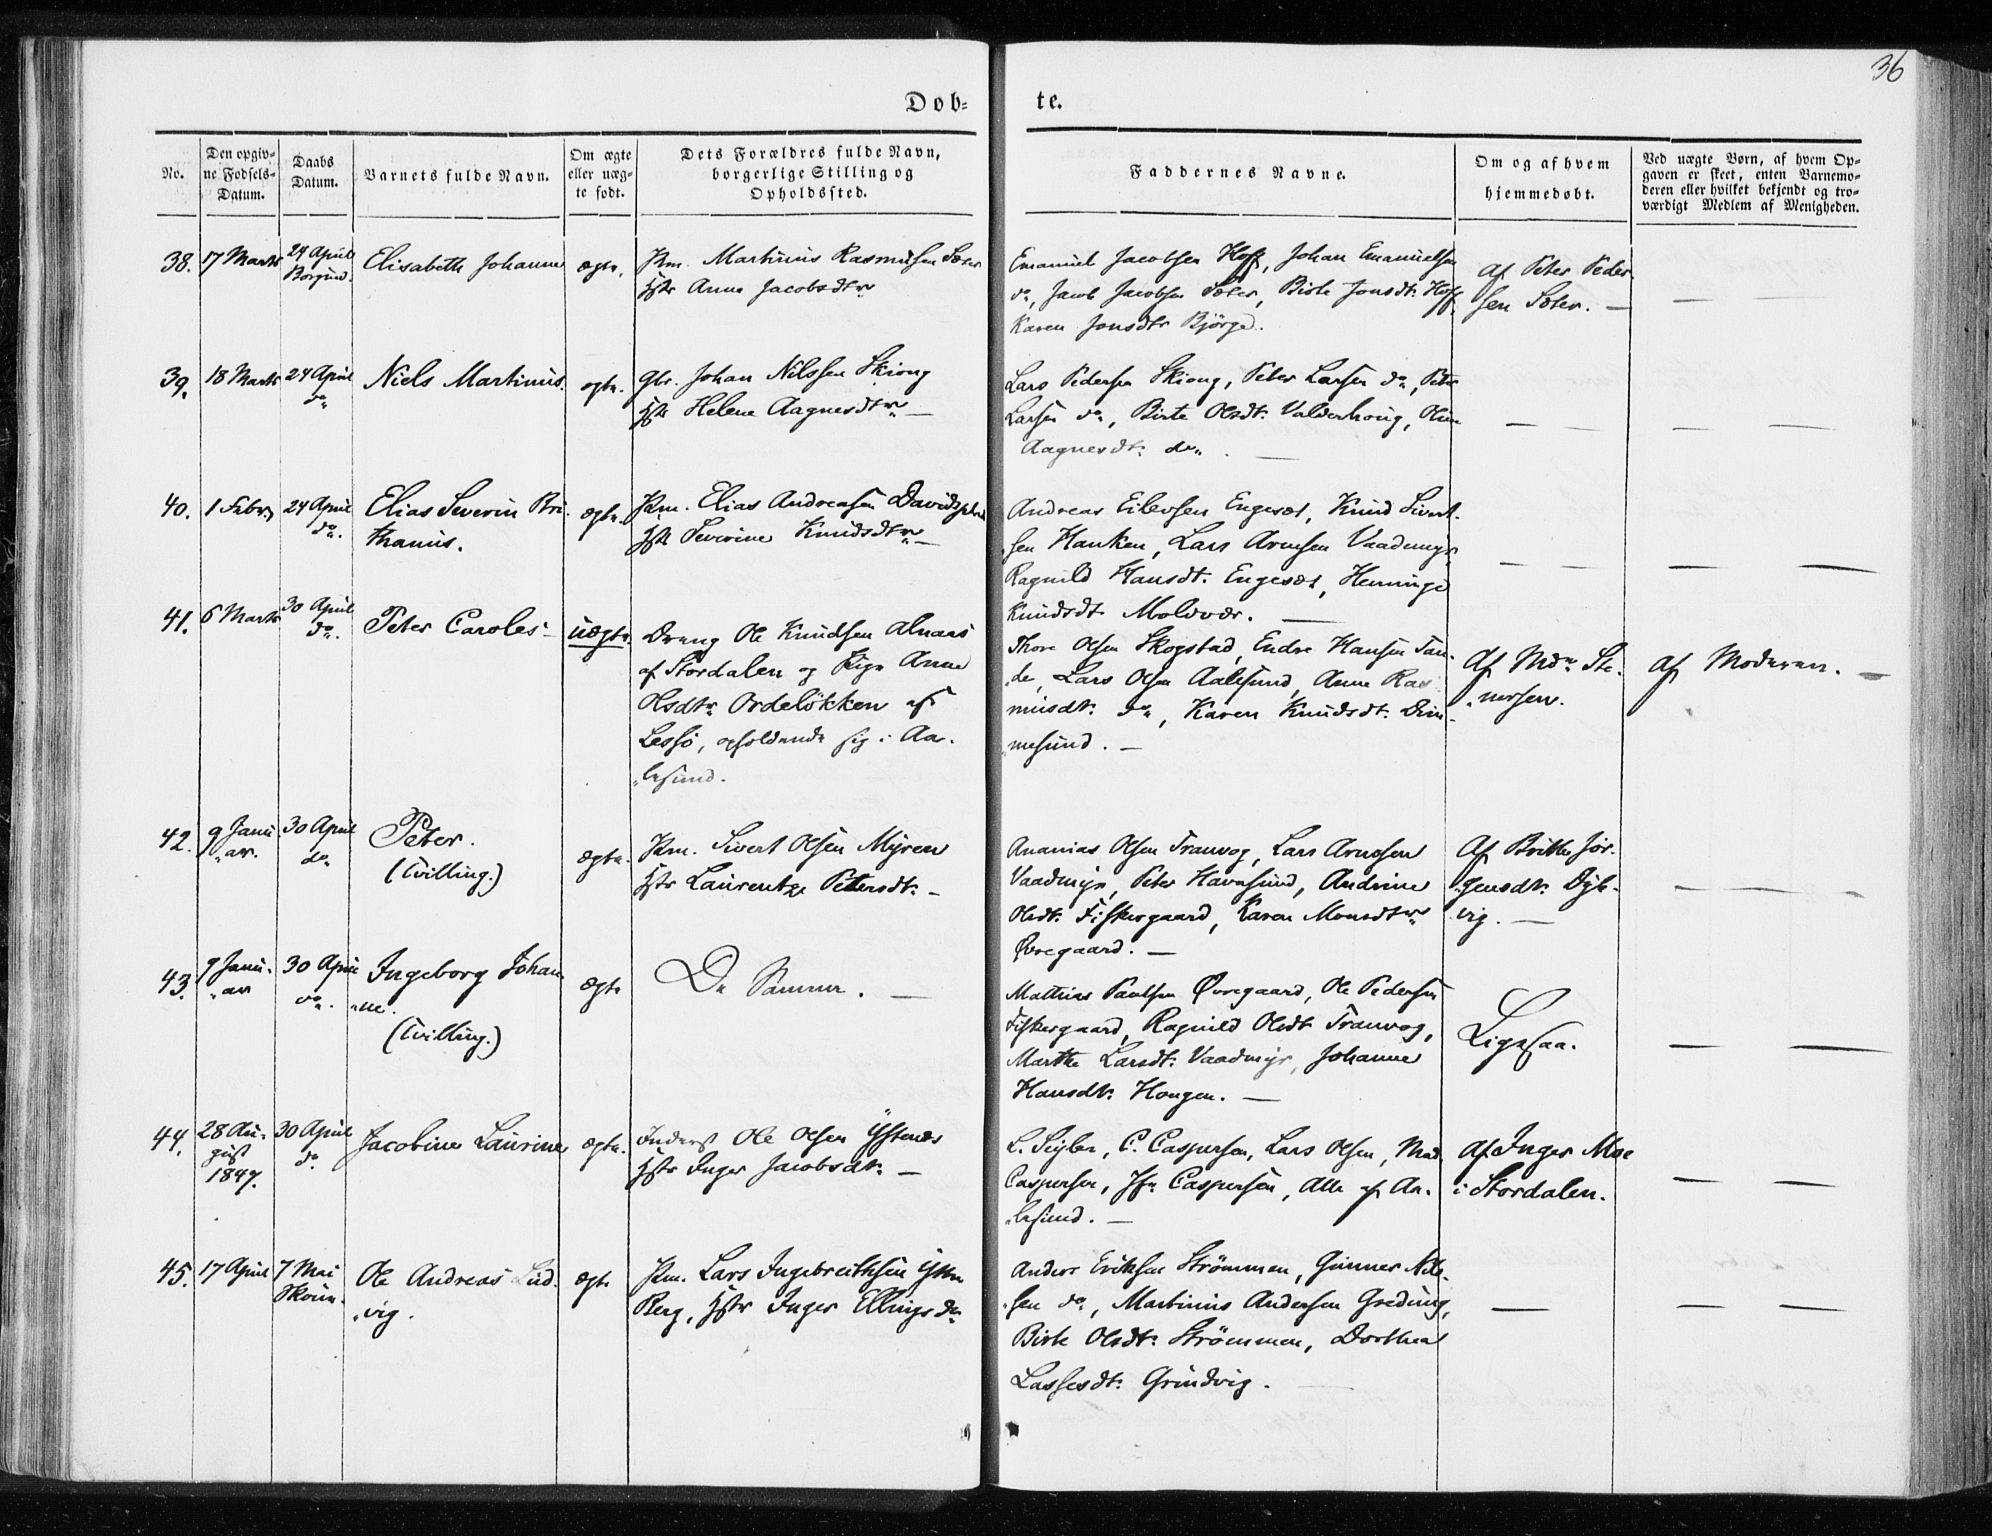 36
Døb-
te.
No.
Den opgiv-
ne Fødsels-
Datum.
Daabs
Datum.
Barnets fulde Navn.
Om ægte
eller uæg-
te født.
Dets Forældres fulde Navn,
borgerlige Stilling og
Opholdssted.
Faddernes Navne.
Om og af hvem
hjemmedøbt.
Ved uægte Børn, af hvem Op-
gaven er skeet, enten Barnemo-
deren eller hvilket bekjendt og tro-
værdigt Medlem af Menigheden.
38. 17 Marts
24 April
Borgund.
Elisabeth Johanne
ægte.
Martinus Rasmusen Sæter
Anne Jacobsdtr
Emanuel Jacobsen Hoff, Johan Emanuelsen
do, Jacob Jacobsen Sæter, Birte Jonsdt: Hoff,
Karen Jonsdtr Björge.
Af Peter Peder-
sen Sæter. —
39. 18 Marts
24 April
do
Niels Martinus.
ægte.
Gbr. Johan Nilssen Skiong
Helene Aagnesdtr —
Lars Pedersen Skiong, Peter Larsen do, Peter
Larsen do, Birte Olsdt: Valderhoug, Oline
Aagnesdt: do. —
40. 1 Febr.
24 April
do.
Elias Severin Bri-
thanus.
ægte.
Elias Andreasen
Severine Knudsdtr —
Andreas Eilevsen Engeset, Knud Sivert-
sen Hanken, Lars Arnesen Vaadmyr,
Ragnild Hansdt: Engeset, Henninge
Knudsdt Moldvær. —
41. 6 Marts
30 April
do.
Peter Caroles —
uægte.
Dreng Ole Knudsen Alnaas
af Stordalen og Pige Anne
Olsdtr Ordeløkken af
Lessø, opholdende sig i Aa-
lesund.
Thore Olsen Skogstad, Endre Hansen Tan-
de, Lars Olsen Aalesund, Anne Ras-
musdt: do, Karen Knudsdt: Dim-
mesund. —
Af Mde Ste-
nersen.
Af Moderen. —
42. 9 Janu-
ar.
30 April
do
Peter.
(Tvilling.)
ægte.
Sivert Olsen Myren
Laurentze Petersdt: —
Ananias Olsen Tranvog, Lars Arnesen
Vaadmyr, Peter Havnsund, Andrine
Olsdt: Fiskergaard, Karen Monsdtr
Øvregaard. —
Af Brithe Jör-
gensdt: Dyb-
vig. —
43. 9 Janu-
ar
30 April
do.
Ingeborg Johan-
ne.
(Tvilling.)
ægte
De Samme. —
Mathias Paulsen Øvregaard, Ole Pedersen
Fiskergaard, Ragnild Olsdt Tranvog,
Marthe Larsdt: Vaadmyr, Johanne
Hansdt: Hougen. —
Ligesaa.
44. 28 Au-
gust
1847.
30 April
do
Jacobine Laurine
ægte.
Inderst Ole Olsen Ystenæs
Inger Jacobsdt: —
C. Caspersen, Lars Olsen, Mad.
Caspersen, Jfr Caspersen, Alle af Aa-
lesund. —
Af Inger Moe
i Stordalen.
45. 17 April
7 Mai
Ole Andreas Lud-
vig.
ægte
Lars Ingebrethsen
Berg, Inger Ellingsdr
Anders Eriksen Strømmen, Gunner Nils-
sen do, Martinus Andersen Gredung,
Birte Olsdt: Strömmen, Dorthea
Lassesdt: Grindvig.